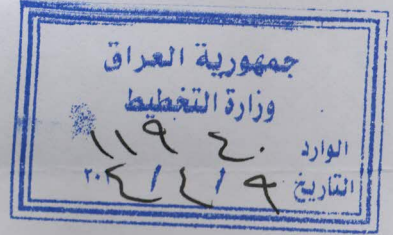 جمهورية العراق
وزارة التخطيط
الوارد ١١٩٤٠
التاريخ ٩ / ٤ / ٢٠٢٤